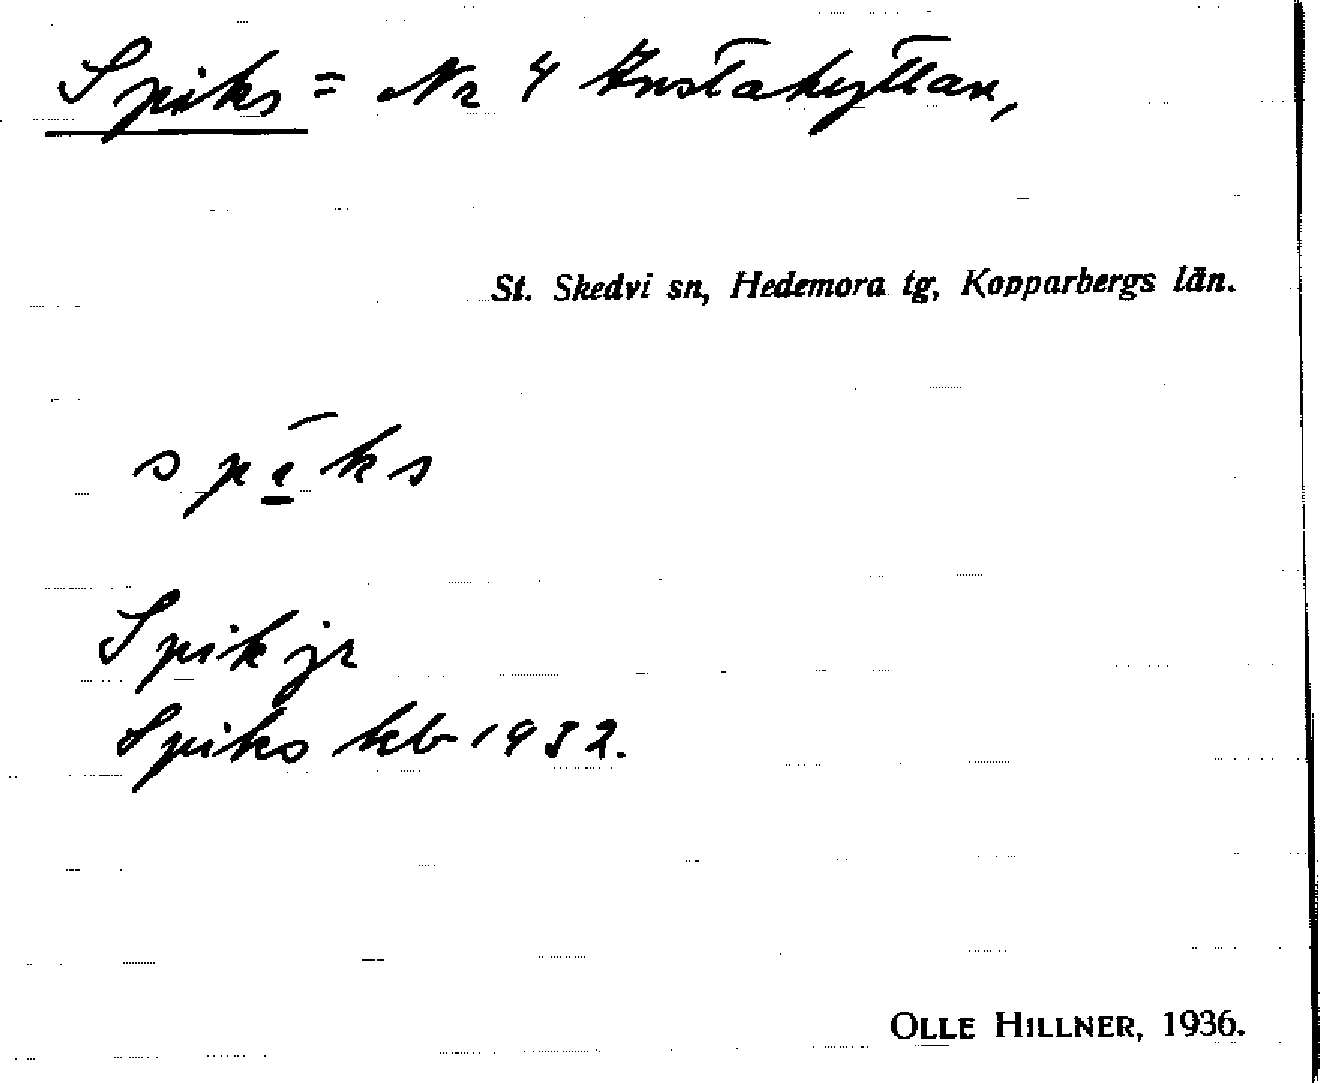 Spiks = Nr 4 Knstahyttan,
St. Skedvi sn, Hedemora tg, Kopparbergs län.
spi̲ks
Spik jr
Spiks kb 1932.
OLLE HILLNER, 1936.